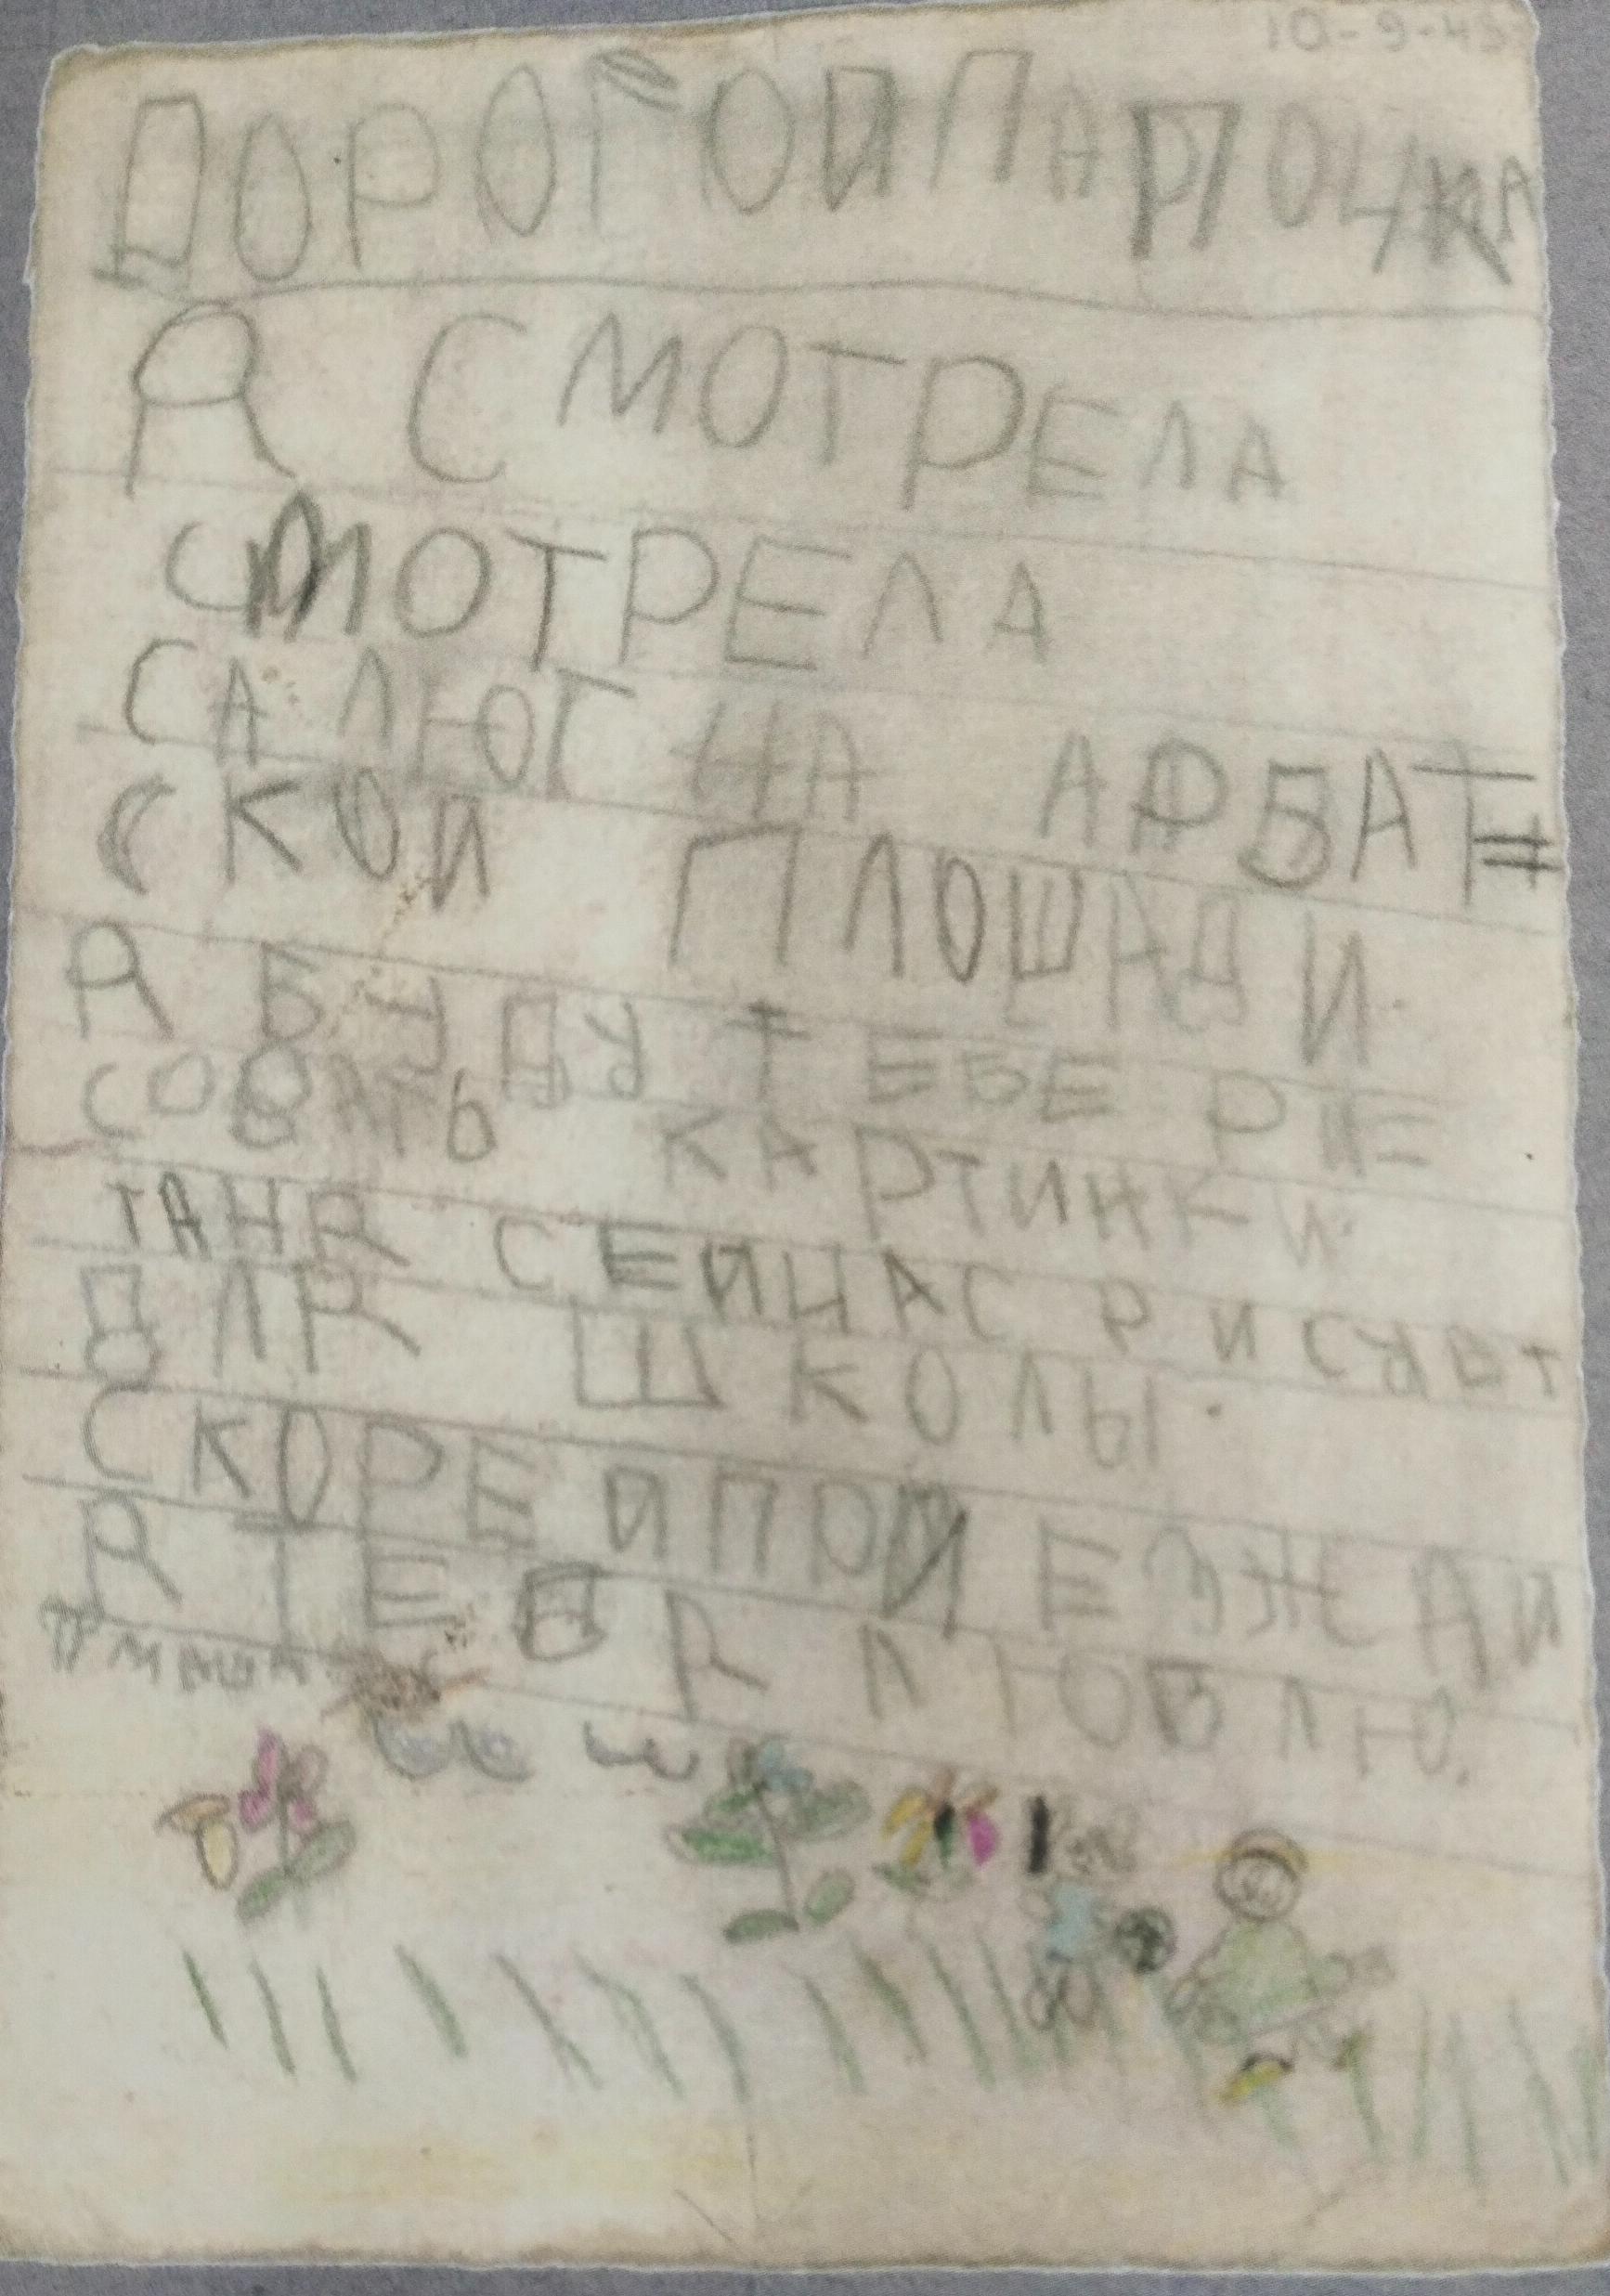 10-9-45
ДОРОГОЙ ПАПОЧКА
Я СМОТРЕЛА
СМОТРЕЛА
САЛЮТ НА АРБАТ=
СКОЙ ПЛОШАДИ.
Я БУДУ ТЕБЕ РИ=
СОВАТЬ КАРТИНКИ.
ТАНЯ СЕЙЧАС РИСУЕТ
ДЛЯ ШКОЛЫ.
СКОРЕЙ ПОЙЕЗЖАЙ
Я ТЕБЯ ЛЮБЛЮ.